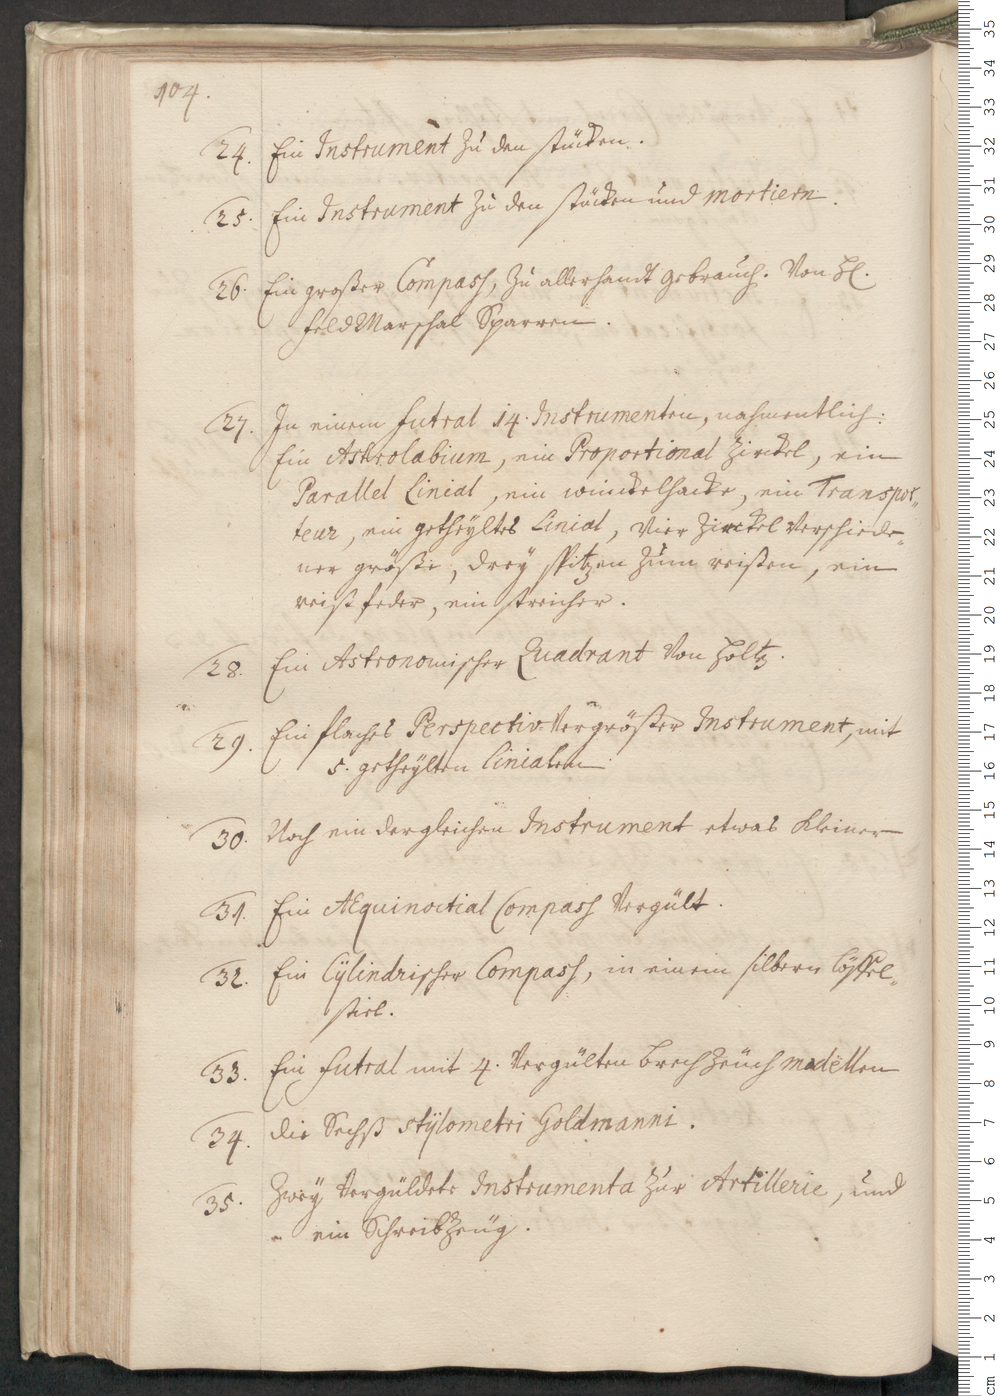 104.
24. Ein Instrument zu den stücken.
25. Ein Instrument zu den stücken und mortiern.
26. Ein großer Compass, zu allerhandt gebrauch. Von Hl.
FeldMarschal Sparren.
27. In einem futral 14. Instrumenten, nahmentlich:
Ein Astrolabium, ein Proportional Zirckel, ein
Parallel Linial, ein winckelhacke, ein Transpor„
teur, ein getheyltes Linial, vier Zirckel verschiede„
ner größe, drey spitzen zum reißen, ein
reißfeder, ein streicher.
28. Ein Astronomischer Quadrant von Holtz.
29. Ein flaches Perspectiv-Vergrößer Instrument, mit
5. getheylten Linialen
30. Noch ein dergleichen Instrument etwas kleiner
31. Ein AEquinoctial Compass vergült.
32. Ein Cylindrischer Compass, in einem silbern Löffel„
stiel.
33. Ein futral mit 4. vergülten brechzeüch modellen
34. die Sechß stÿlometri Goldmanni.
35. Zweÿ vergüldete Instrumenta zur Artillerie, und
ein Schreibzeüg.
cm 1 2 3 4 5 6 7 8 9 10 11 12 13 14 15 16 17 18 19 20 21 22 23 24 25 26 27 28 29 30 31 32 33 34 35